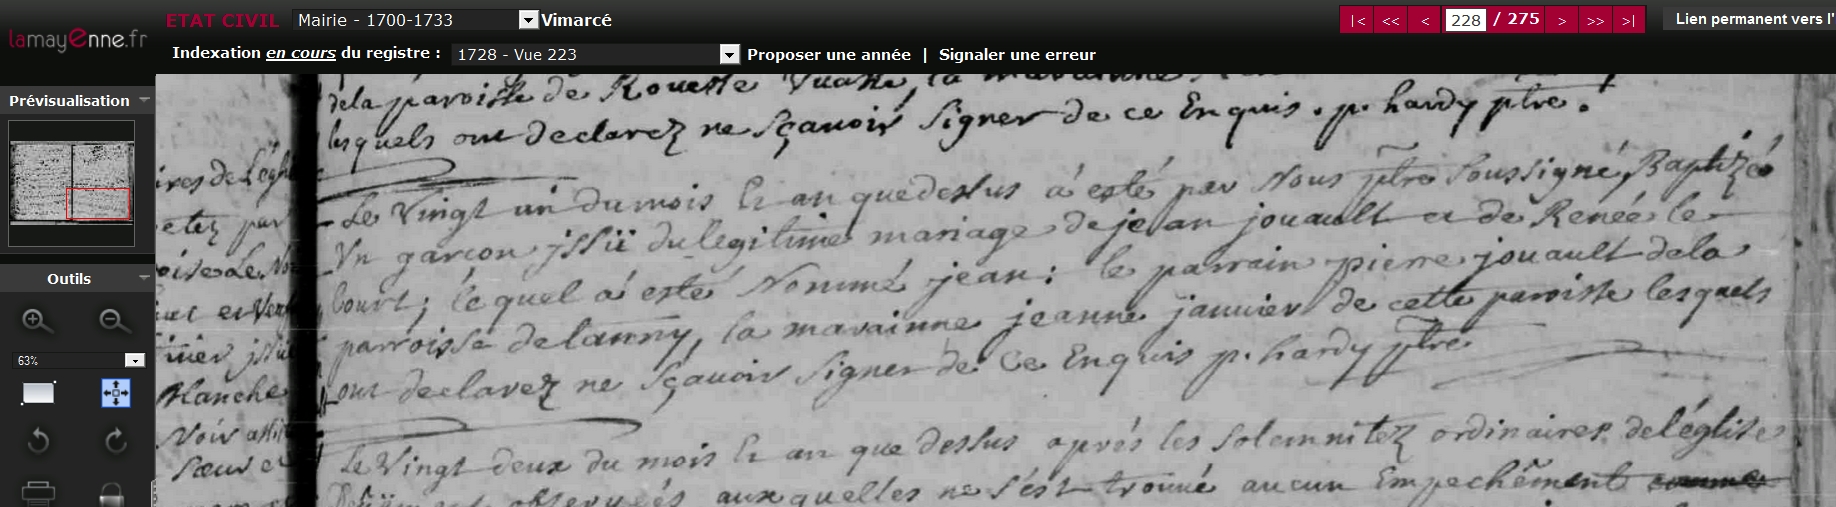 lamayenne.fr
ETAT CIVIL Mairie - 1700-1733 Vimarcé
|< << < 228 / 275 > >> >|
Lien permanent vers l'
Indexation en cours du registre : 1728 - Vue 223 Proposer une année | Signaler une erreur
Prévisualisation
Outils
63%
dela paroisse de Rouesse Vuasse, la marainne
lesquels ont declarez ne sçavoir signer de ce Enquis . p. hardy ptre .
Le Vingt un du mois & an que dessus a esté par Nous ptre soussigné, Baptizé
Vn garcon jssü du legitime mariage de jean jouault et de Renée le
Court ; lequel a esté Nommé jean : le parrain pierre jouault dela
parroisse de lanny, la marainne jeanne janvier de cette paroisse lesquels
ont declarez ne sçavoir signer de Ce Enquis p. hardy ptre
Le Vingt deux du mois & an que dessus aprés les solemnitez ordinaires de l'église
observeés auxquelles ne s'est trouué aucun Empechément